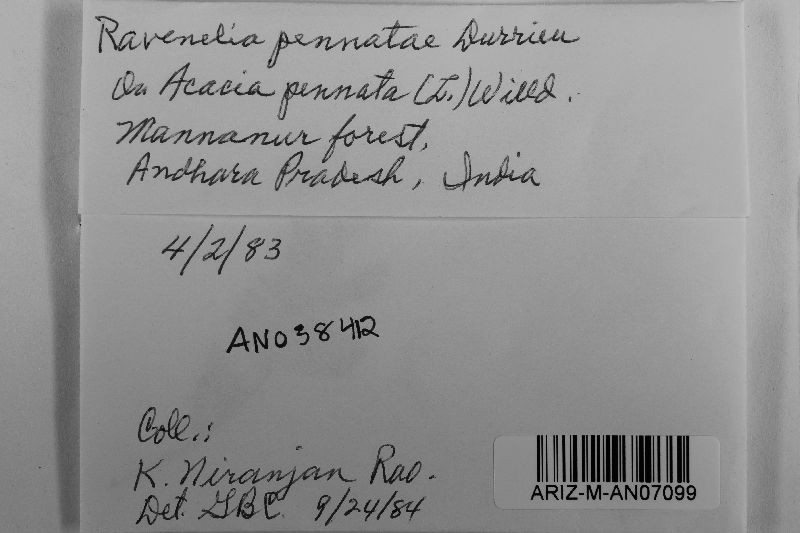 Ravenelia pennatae Durrieu
On Acacia pennata (L.) Willd.
Mannanur forest,
Andhara Pradesh, India
4/2/83
AN038412
Coll.:
K. Niranjan Rao.
Det. GBC 9/24/84
ARIZ-M-AN07099